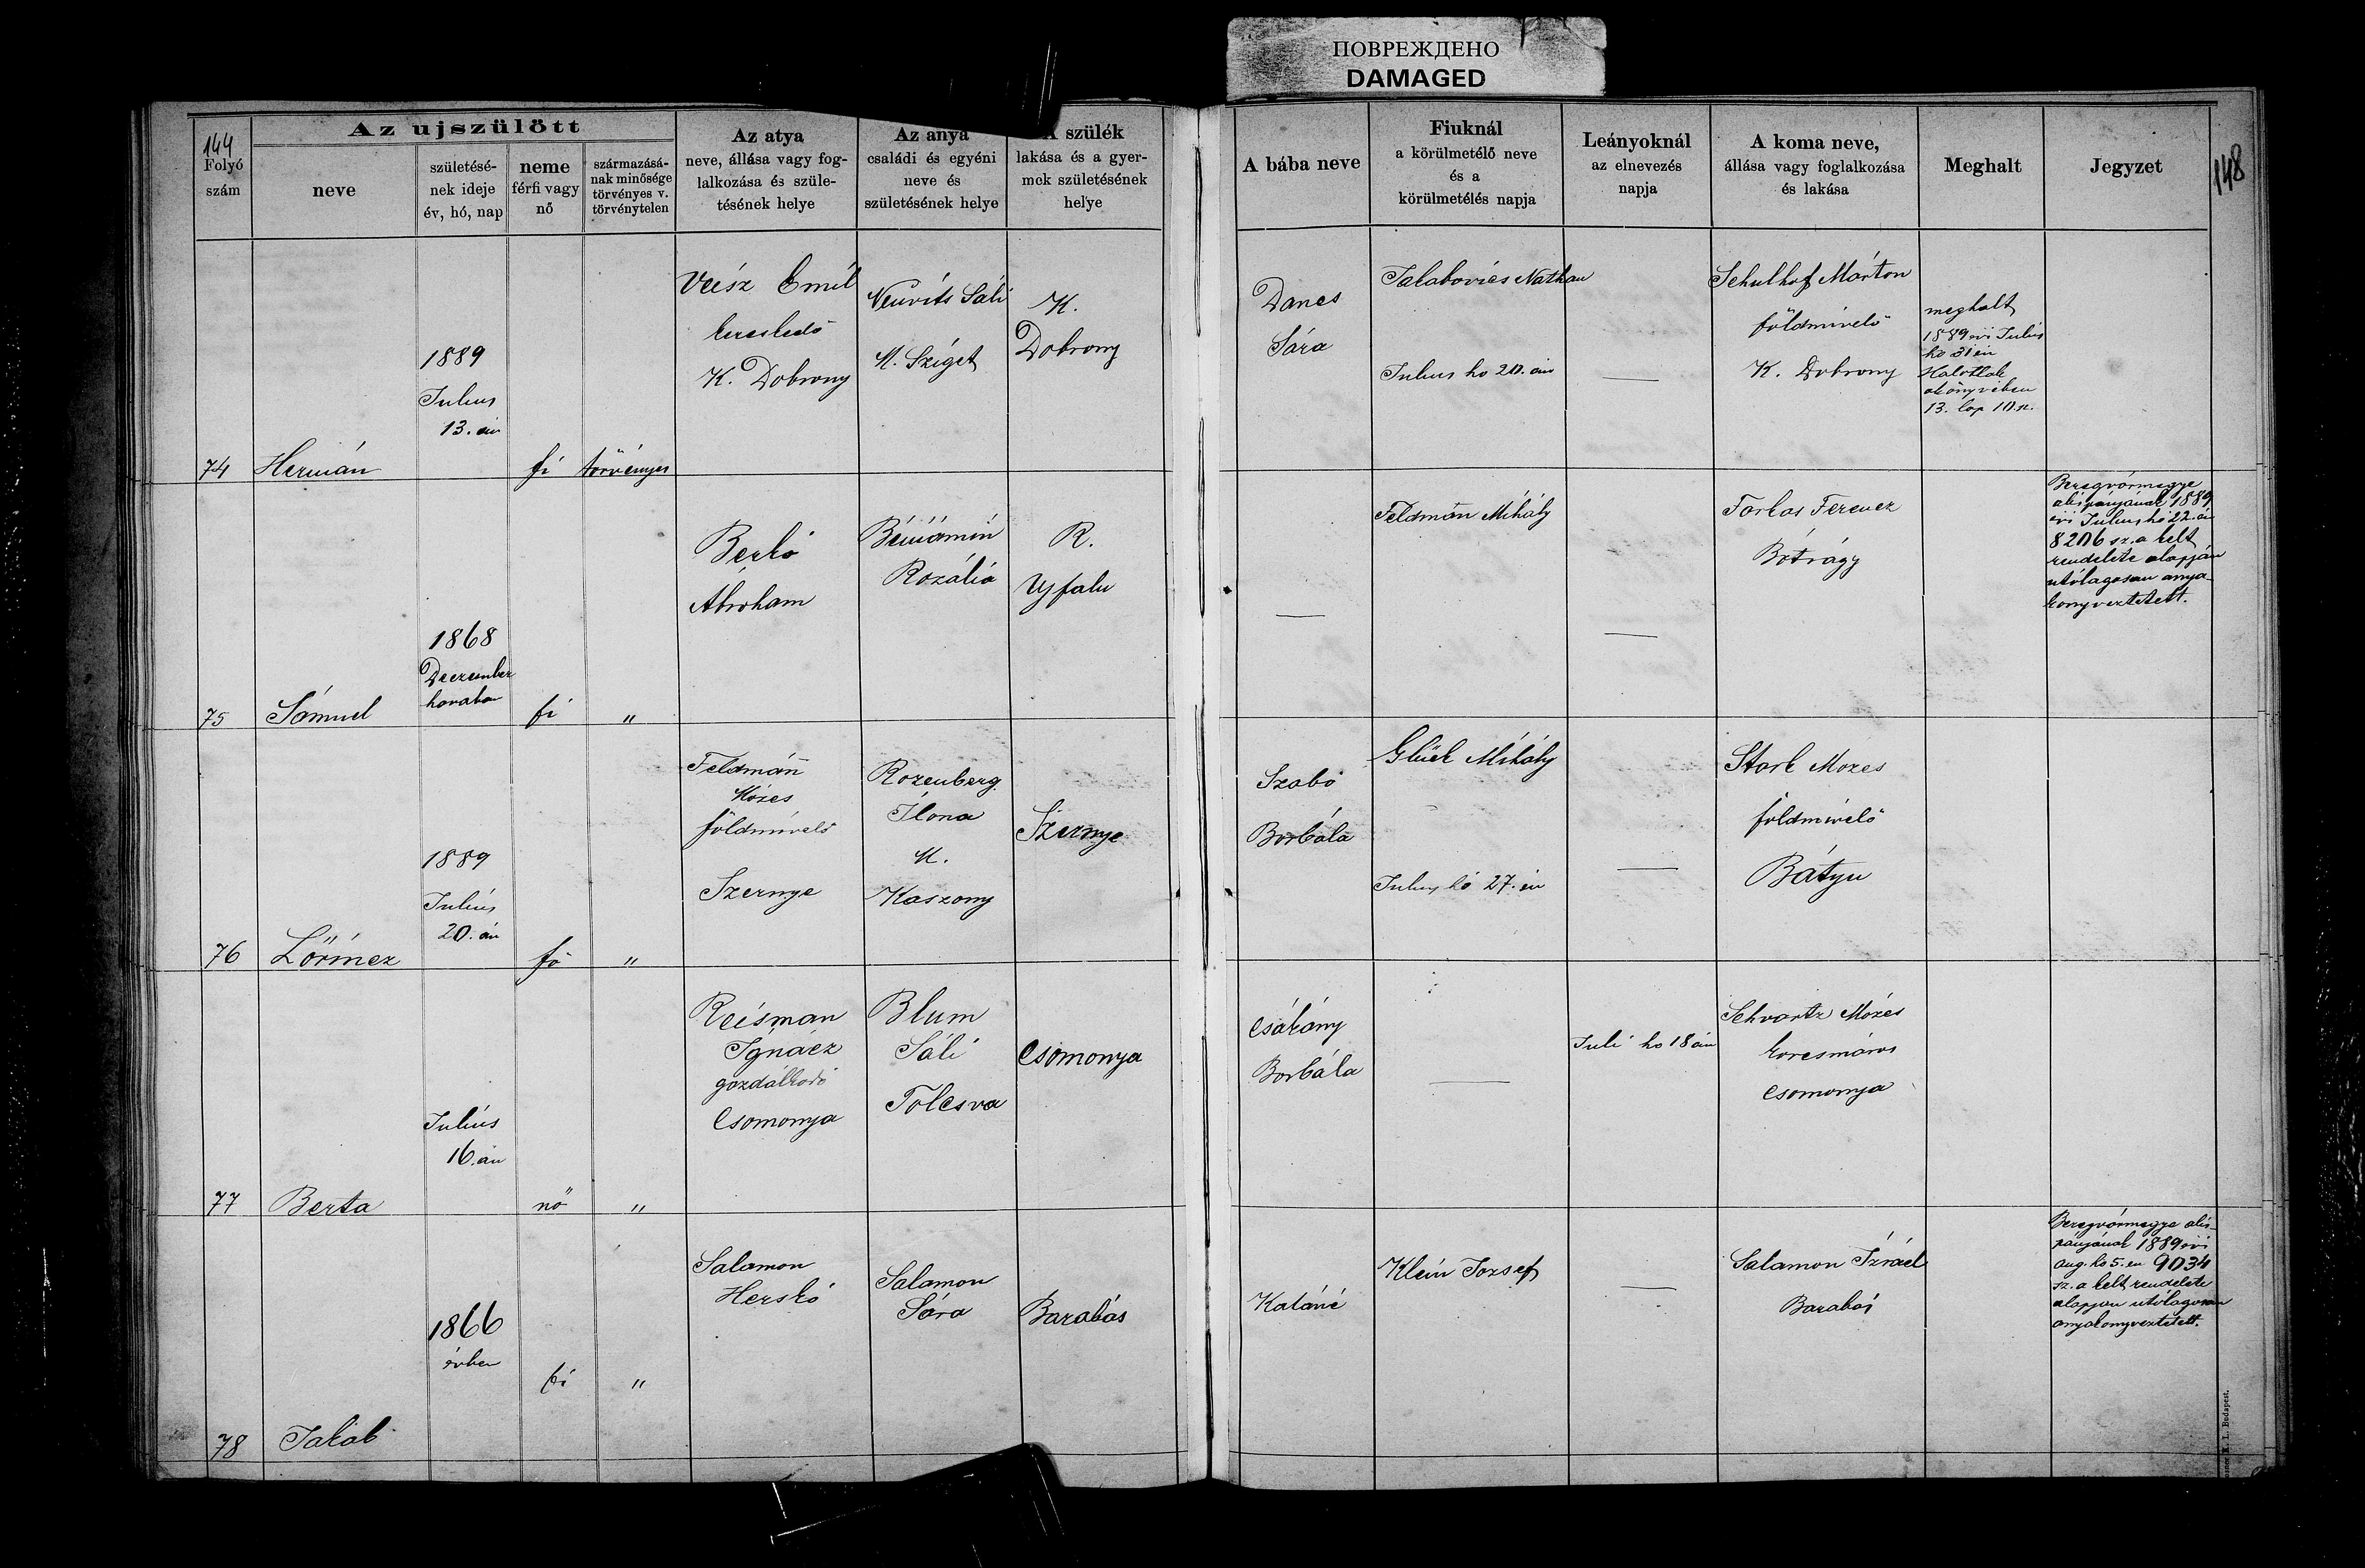 ПОВРЕЖДЕНО
DAMAGED
144
148
Az ujszülött
Folyó
szám
neve
születésé-
nek ideje
év, hó, nap
neme
férfi vagy
nő
származásá-
nak minősége
törvényes v.
törvénytelen
Az atya
neve, állása vagy fog-
lalkozása és szüle-
tésének helye
Az anya
családi és egyéni
neve és
születésének helye
A szülék
lakása és a gyer-
mek születésének
helye
A bába neve
Fiuknál
a körülmetélő neve
és a
körülmetélés napja
Leányoknál
az elnevezés
napja
A koma neve,
állása vagy foglalkozása
és lakása
Meghalt
Jegyzet
74
Hermán
1889
Julius
13. án
fi
törvényes
Veisz Emil
kereskedő
K. Dobrony
Neuvits Sáli
M. Sziget
K.
Dobrony
Dancs
Sára
Jalabovics Nathan
Julius ho 20. án
—
Schulhof Márton
földmivelő
K. Dobrony
meghalt
1889 évi Julius
ho 31 én
Halottak
akönyvében
13. lap 10. sz.
75
Sámuel
1868
Deczember
havaban
fi
"
Berkó
Abraham
Béniámin
Rozália
R.
Ujfalu
—
Feldmán Mihály
—
Farkas Ferencz
Bótrágy
Beregvármegye
alispánjának 1889
évi Julius hó 22. én
8206 sz. a kelt
rendelete alapján
utólagosan anya-
konyveztetett.
76
Lőrincz
1889
Julius
20. án
fi
"
Feldmán
Mózes
földmivelő
Szernye
Rozenberg
Ilona
M.
Kaszony
Szernye
Szabó
Borbála
Glück Mihály
Julius hó 27. én
—
Stark Mozes
földmivelő
Bátyu
77
Berta
Julius
16. án
nő
"
Reisman
Ignácz
gazdálkodó
Csomonya
Blum
Sáli
Tolcsva
Csomonya
Csákány
Borbála
—
Juli ho 18 án
Schvartz Mózes
korcsmáros
Csomonya
78
Jakab
1866
évben
fi
"
Salamon
Herskó
Salamon
Sára
Barabás
Katáné
Klein Jozsef
—
Salamon Izráel
Barabás
Beregvármegye alis-
pánjának 1889 évi
aug. ho 5. en 9034
sz. a kelt rendelete
alapjan utólagosan
anyakonyveztetett.
K. I. Budapest.